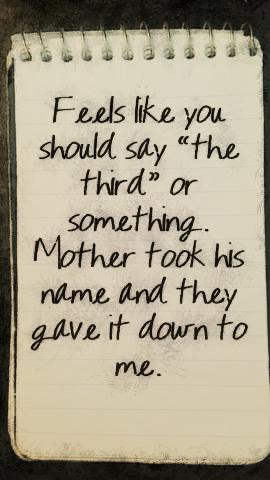 Feels like you
should say “the
third” or
something.
Mother took his
name and they
gave it down to
me.